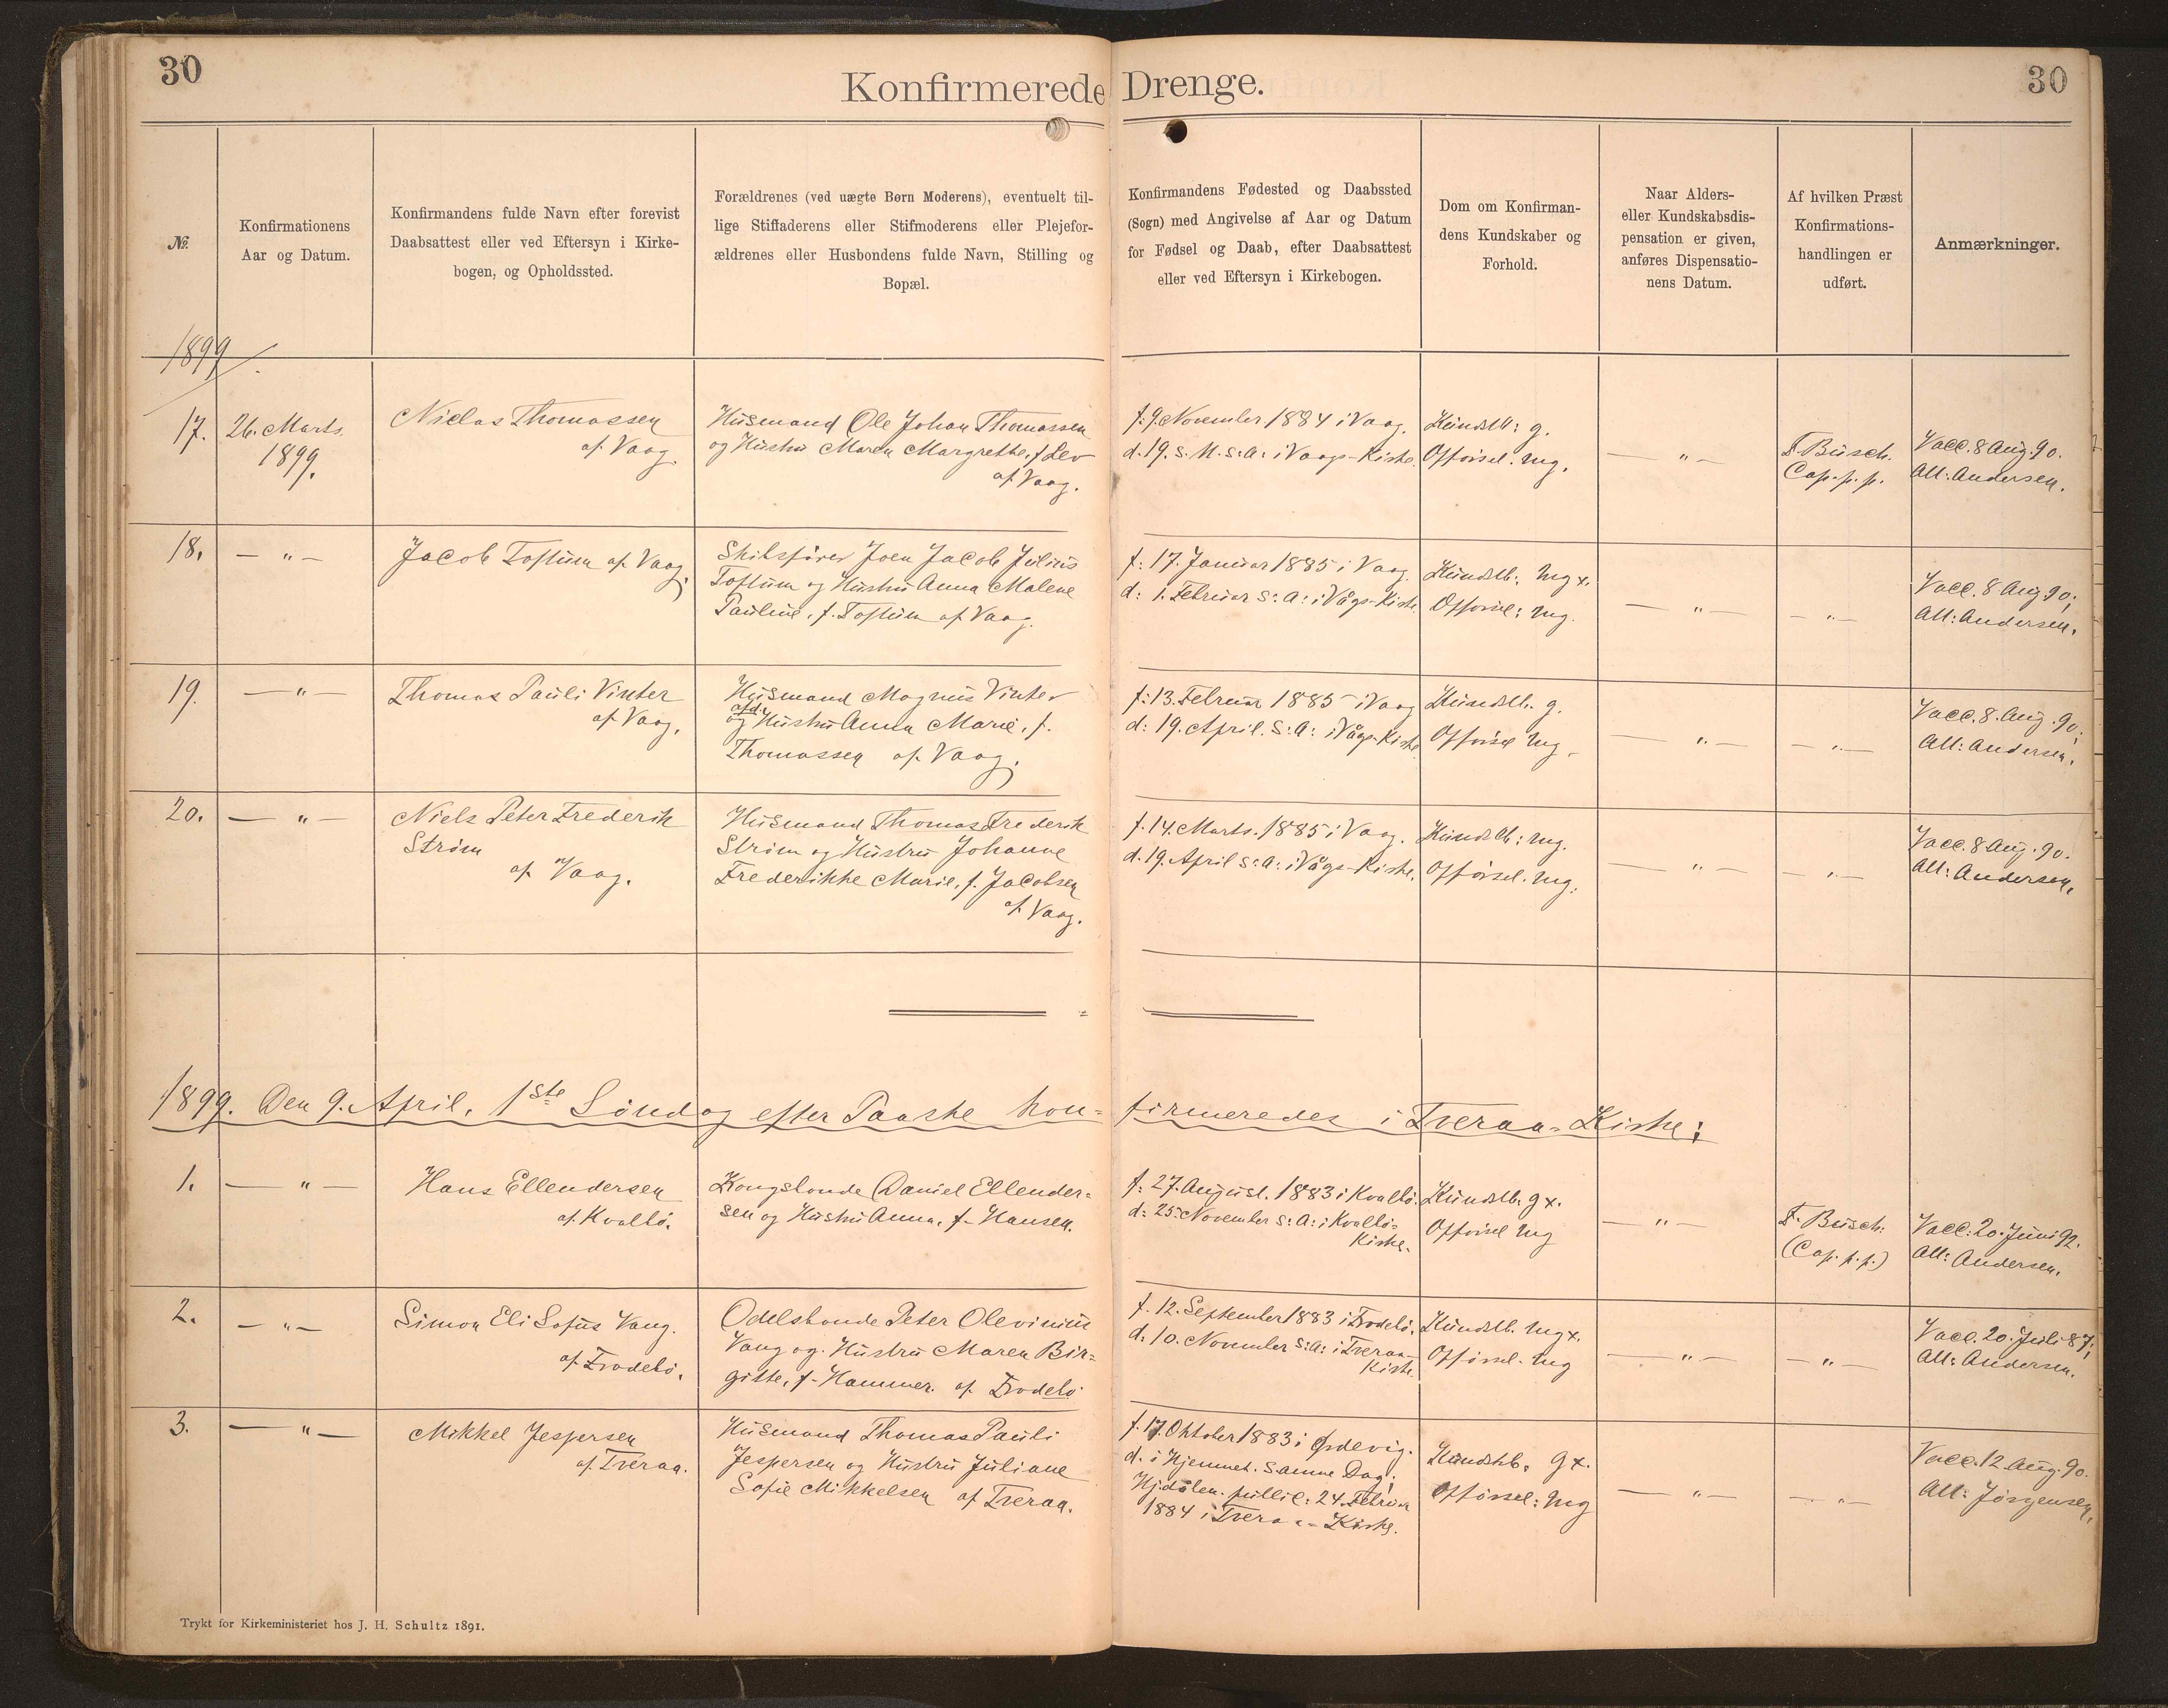 30
Konfirmerede Drenge.
30
№.
Konfirmationens
Aar og Datum.
Konfirmandens fulde Navn efter forevist
Daabsattest eller ved Eftersyn i Kirke-
bogen, og Opholdssted.
Forældrenes (ved uægte Børn Moderens), eventuelt til-
lige Stiffaderens eller Stifmoderens eller Plejefor-
ældrenes eller Husbondens fulde Navn, Stilling og
Bopæl.
Konfirmandens Fødested og Daabssted
(Sogn) med Angivelse af Aar og Datum
for Fødsel og Daab, efter Daabsattest
eller ved Eftersyn i Kirkebogen.
Dom om Konfirman-
dens Kundskaber og
Forhold.
Naar Alders-
eller Kundskabsdis-
pensation er given,
anføres Dispensatio-
nens Datum.
Af hvilken Præst
Konfirmations-
handlingen er
udført.
Anmærkninger.
1899
17.
26. Marts
1899.
Niclas Thomassen
af Vaag.
Husmand Ole Johan Thomassen
og Hustru Maren Margrethe, f. Lev
af Vaag.
f. 9. November 1884 i Vaag.
d. 19. s. M. s: a: i Vaags-Kirke.
Kundsk: g.
Opførsel. mg.
— " —
F. Busch.
Cap. p. p.
Vacc. 8 Aug. 90.
Att: Andersen.
18.
— " —
Jacob Toftum af Vaag.
Skibsfører Joen Jacob Julius
Toftum og Hustru Anna Malene
Pauline, f. Toftum af Vaag.
f: 17. Januar 1885 i Vaag.
d: 1. Februar s: a: i Vågs-Kirke.
Kundsk: mg x.
Opførsel: mg.
— " —
— " —
Vacc. 8 Aug. 90;
Att: Andersen.
19.
— " —
Thomas Pauli Vinter
af Vaag.
Husmand Magnus Vinter
og afd. Hustru Anna Marie, f.
Thomassen af Vaag.
f: 13. Februar 1885 i Vaag
d: 19. April. s: a: i Vågs-Kirke
Kundsk. g.
Opførsel mg.
— " —
— " —
Vacc. 8. Aug. 90;
Att: Andersen.
20.
— " —
Niels Peter Frederik
Strøm
af Vaag.
Husmand Thomas Frederik
Strøm og Hustru Johanne
Frederikke Marie, f. Jacobsen
af Vaag.
f. 14. Marts. 1885 i Vaag.
d. 19. April s: a: i Vågs-Kirke.
Kundsk: mg.
Opførsel. mg.
— " —
— " —
Vacc. 8 Aug. 90.
Att: Andersen.
1899. Den 9. April. 1ste Søndag efter Paaske kon= firmeredes i Tveraa-Kirke:
1.
— " —
Hans Ellendersen
af Kvalbø.
Kongsbonde Daniel Ellender=
sen og Hustru Anna, f. Hansen.
f: 27. August. 1883 i Kvalbø.
d: 25. November s: a: i Kvalbø=
Kirke.
Kundsk. g x.
Opførsel mg
— " —
F. Busch.
(Cap. p. p.)
Vacc: 20. Juni 92.
Att: Andersen.
2.
— " —
Simon Eli Sofus Vang.
af Frodebø.
Odelsbonde Peter Olevinius
Vang og. Hustru Maren Bir=
gitte, f. Hammer. af Frodebø
f. 12. September 1883 i Frodebø.
d: 10. November s: a: i Tveraa-
Kirke.
Kundsk. mg x.
Opførsel. mg
— " —
— " —
Vacc. 20. Juli 87;
Att: Andersen.
3.
— " —
Mikkel Jespersen
af Tveraa.
Husmand Thomas Pauli
Jespersen og Hustru Juliane
Sofie Mikkelsen af Tveraa.
f. 17. Oktober 1883 i Ørdevig.
d. i Hjemmet. Samme Dag;
Hjdåben. public: 24. Februar
1884 i Tveraa-Kirke.
Kundskb. g x.
Opførsel: mg
— " —
— " —
Vacc. 12. Aug. 90.
Att: Jørgensen.
Trykt for Kirkeministeriet hos J. H. Schultz 1891.